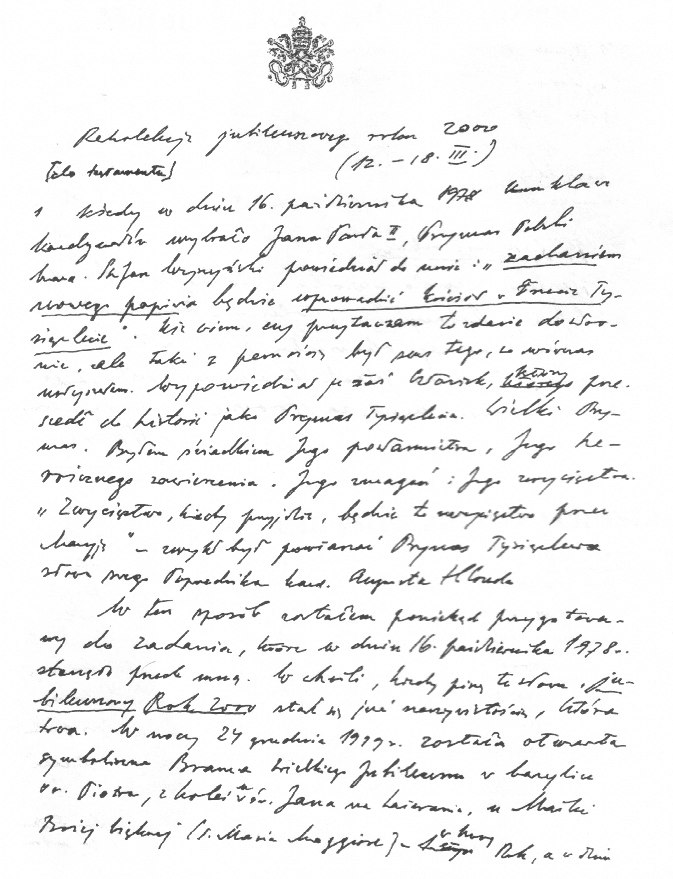 Rekolekcje jubileuszowego roku 2000
[do testamentu] (12. – 18. III.)
1 Kiedy w dniu 16. października 1978 konklawe
kardynałów wybrało Jana Pawła II, Prymas Polski
kard. Stefan Wyszyński powiedział do mnie: „zadaniem
nowego papieża będzie wprowadzić Kościół w Trzecie Ty-
siąclecie". Nie wiem, czy przytaczam to zdanie dosłow-
nie, ale taki z pewnością był sens tego, co wówczas
usłyszałem. Wypowiedział je zaś Człowiek, który prze-
szedł do historii jako Prymas Tysiąclecia. Wielki Pry-
mas. Byłem świadkiem Jego posłannictwa, Jego he-
roicznego zawierzenia. Jego zmagań i Jego zwycięstwa.
„Zwycięstwo, kiedy przyjdzie, będzie to zwycięstwo przez
Maryję" – zwykł był powtarzać Prymas Tysiąclecia
słowa swego Poprzednika kard. Augusta Hlonda
W ten sposób zostałem poniekąd przygotowa-
ny do zadania, które w dniu 16. października 1978 r.
stanęło przede mną. W chwili, kiedy piszę te słowa, ju-
bileuszowy Rok 2000 stał się już rzeczywistością, która
trwa. W nocy 24 grudnia 1999 r. została otwarta
symboliczna Brama Wielkiego Jubileuszu w bazylice
św. Piotra, z kolei w św. Jana na Lateranie, u Matki
Bożej Większej (S. Maria Maggiore) – w Nowy Rok, a w dniu